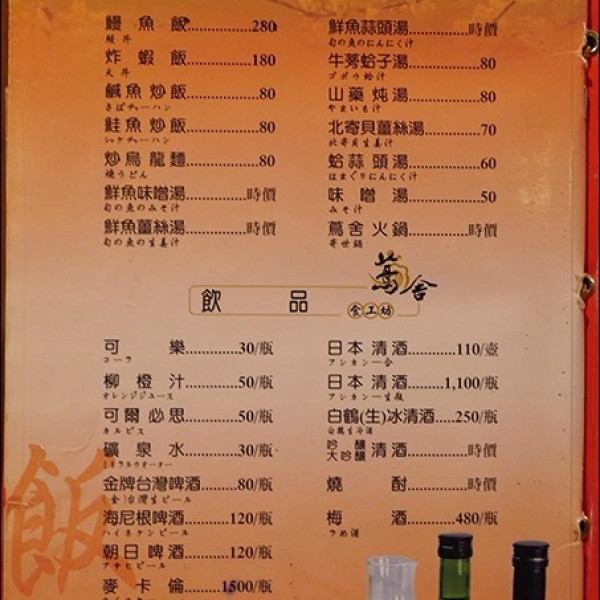 鰻魚飯............280
鰻丼
炸蝦飯............180
天丼
鹹魚炒飯............80
さばチャーハン
鮭魚炒飯............80
シャケチャーハン
炒烏龍麵............80
焼うどん
鮮魚味噌湯............時價
旬の魚のみそ汁
鮮魚薑絲湯............時價
旬の魚の生姜汁
鮮魚蒜頭湯............時價
旬の魚のにんにく汁
牛蒡蛤子湯............80
ゴボウ蛤汁
山藥炖湯............80
やまいも汁
北寄貝薑絲湯............70
北寄貝生姜汁
蛤蒜頭湯............60
はまぐりにんにく汁
味噌湯............50
みそ汁
蔦舍火鍋............時價
寄世鍋
蔦舍
食工坊
飲品
可樂............30/瓶
コーラ
柳橙汁............50/瓶
オレンジジュース
可爾必思............50/瓶
カルピス
礦泉水............30/瓶
ミネラルウオーター
金牌台灣啤酒............80/瓶
(金)台灣生ビール
海尼根啤酒............120/瓶
ハイネケンビール
朝日啤酒............120/瓶
アサヒビール
麥卡倫............1500/瓶
日本清酒............110/壺
アシカン一合
日本清酒............1,100/瓶
アシカン一生瓶
白鶴(生)冰清酒............250/瓶
白鶴生冷酒
吟釀
大吟釀清酒............時價
燒酎............時價
梅酒............480/瓶
うめ酒
飯